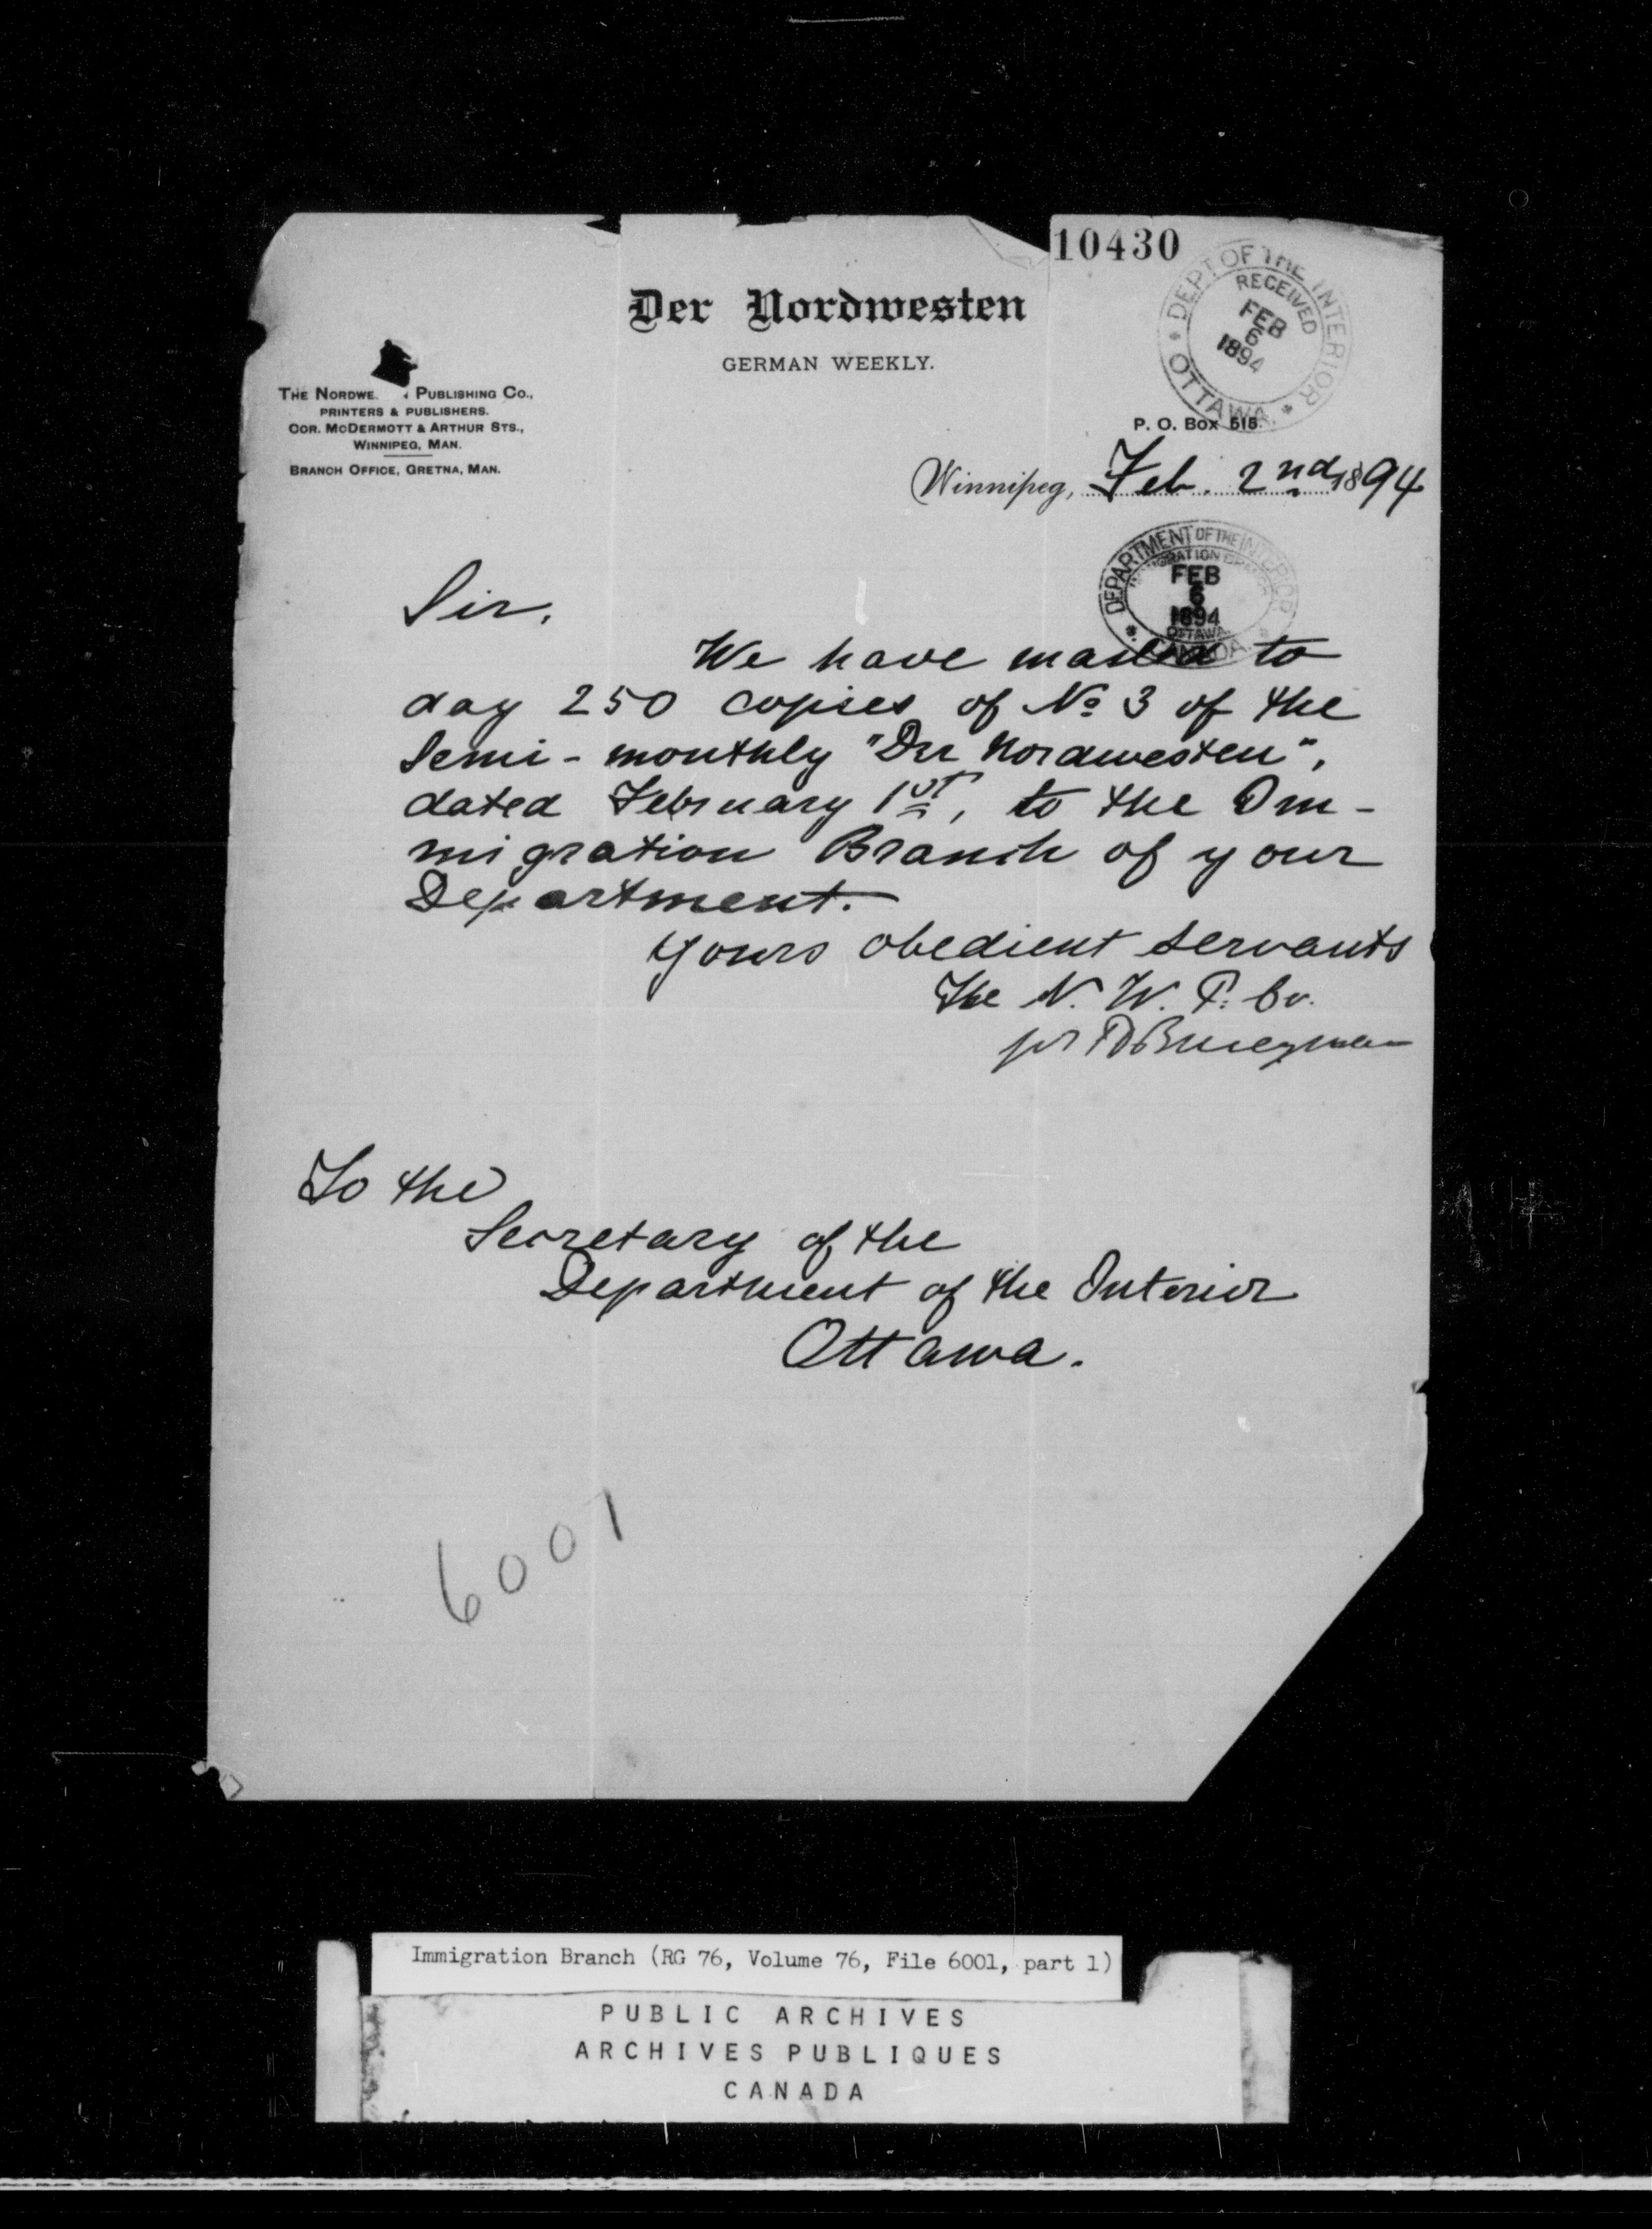 10430
DEPT OF THE INTERIOR
RECEIVED
FEB
6
1894
OTTAWA
Der Nordwesten
GERMAN WEEKLY.
THE NORDWE PUBLISHING CO.,
PRINTERS & PUBLISHERS.
COR. MCDERMOTT & ARTHUR STS.,
WINNIPEG, MAN.
BRANCH OFFICE, GRETNA, MAN.
P. O. Box 515.
Winnipeg, Feb. 2nd 1894
DEPARTMENT OF THE INTERIOR
IMMIGRATION BRANCH
FEB
6
1894
OTTAWA
CANADA
Sir,
We have mailed to
day 250 copies of No 3 of the
Semi-monthly "Der Nordwesten",
dated February 1st, to the Im-
migration Branch of your
Department.
Yours obedient servants
The N. W. P. Co.
per
To the
Secretary of the
Department of the Interior
Ottawa.
6001
Immigration Branch (RG 76, Volume 76, File 6001, part 1)
PUBLIC ARCHIVES
ARCHIVES PUBLIQUES
CANADA